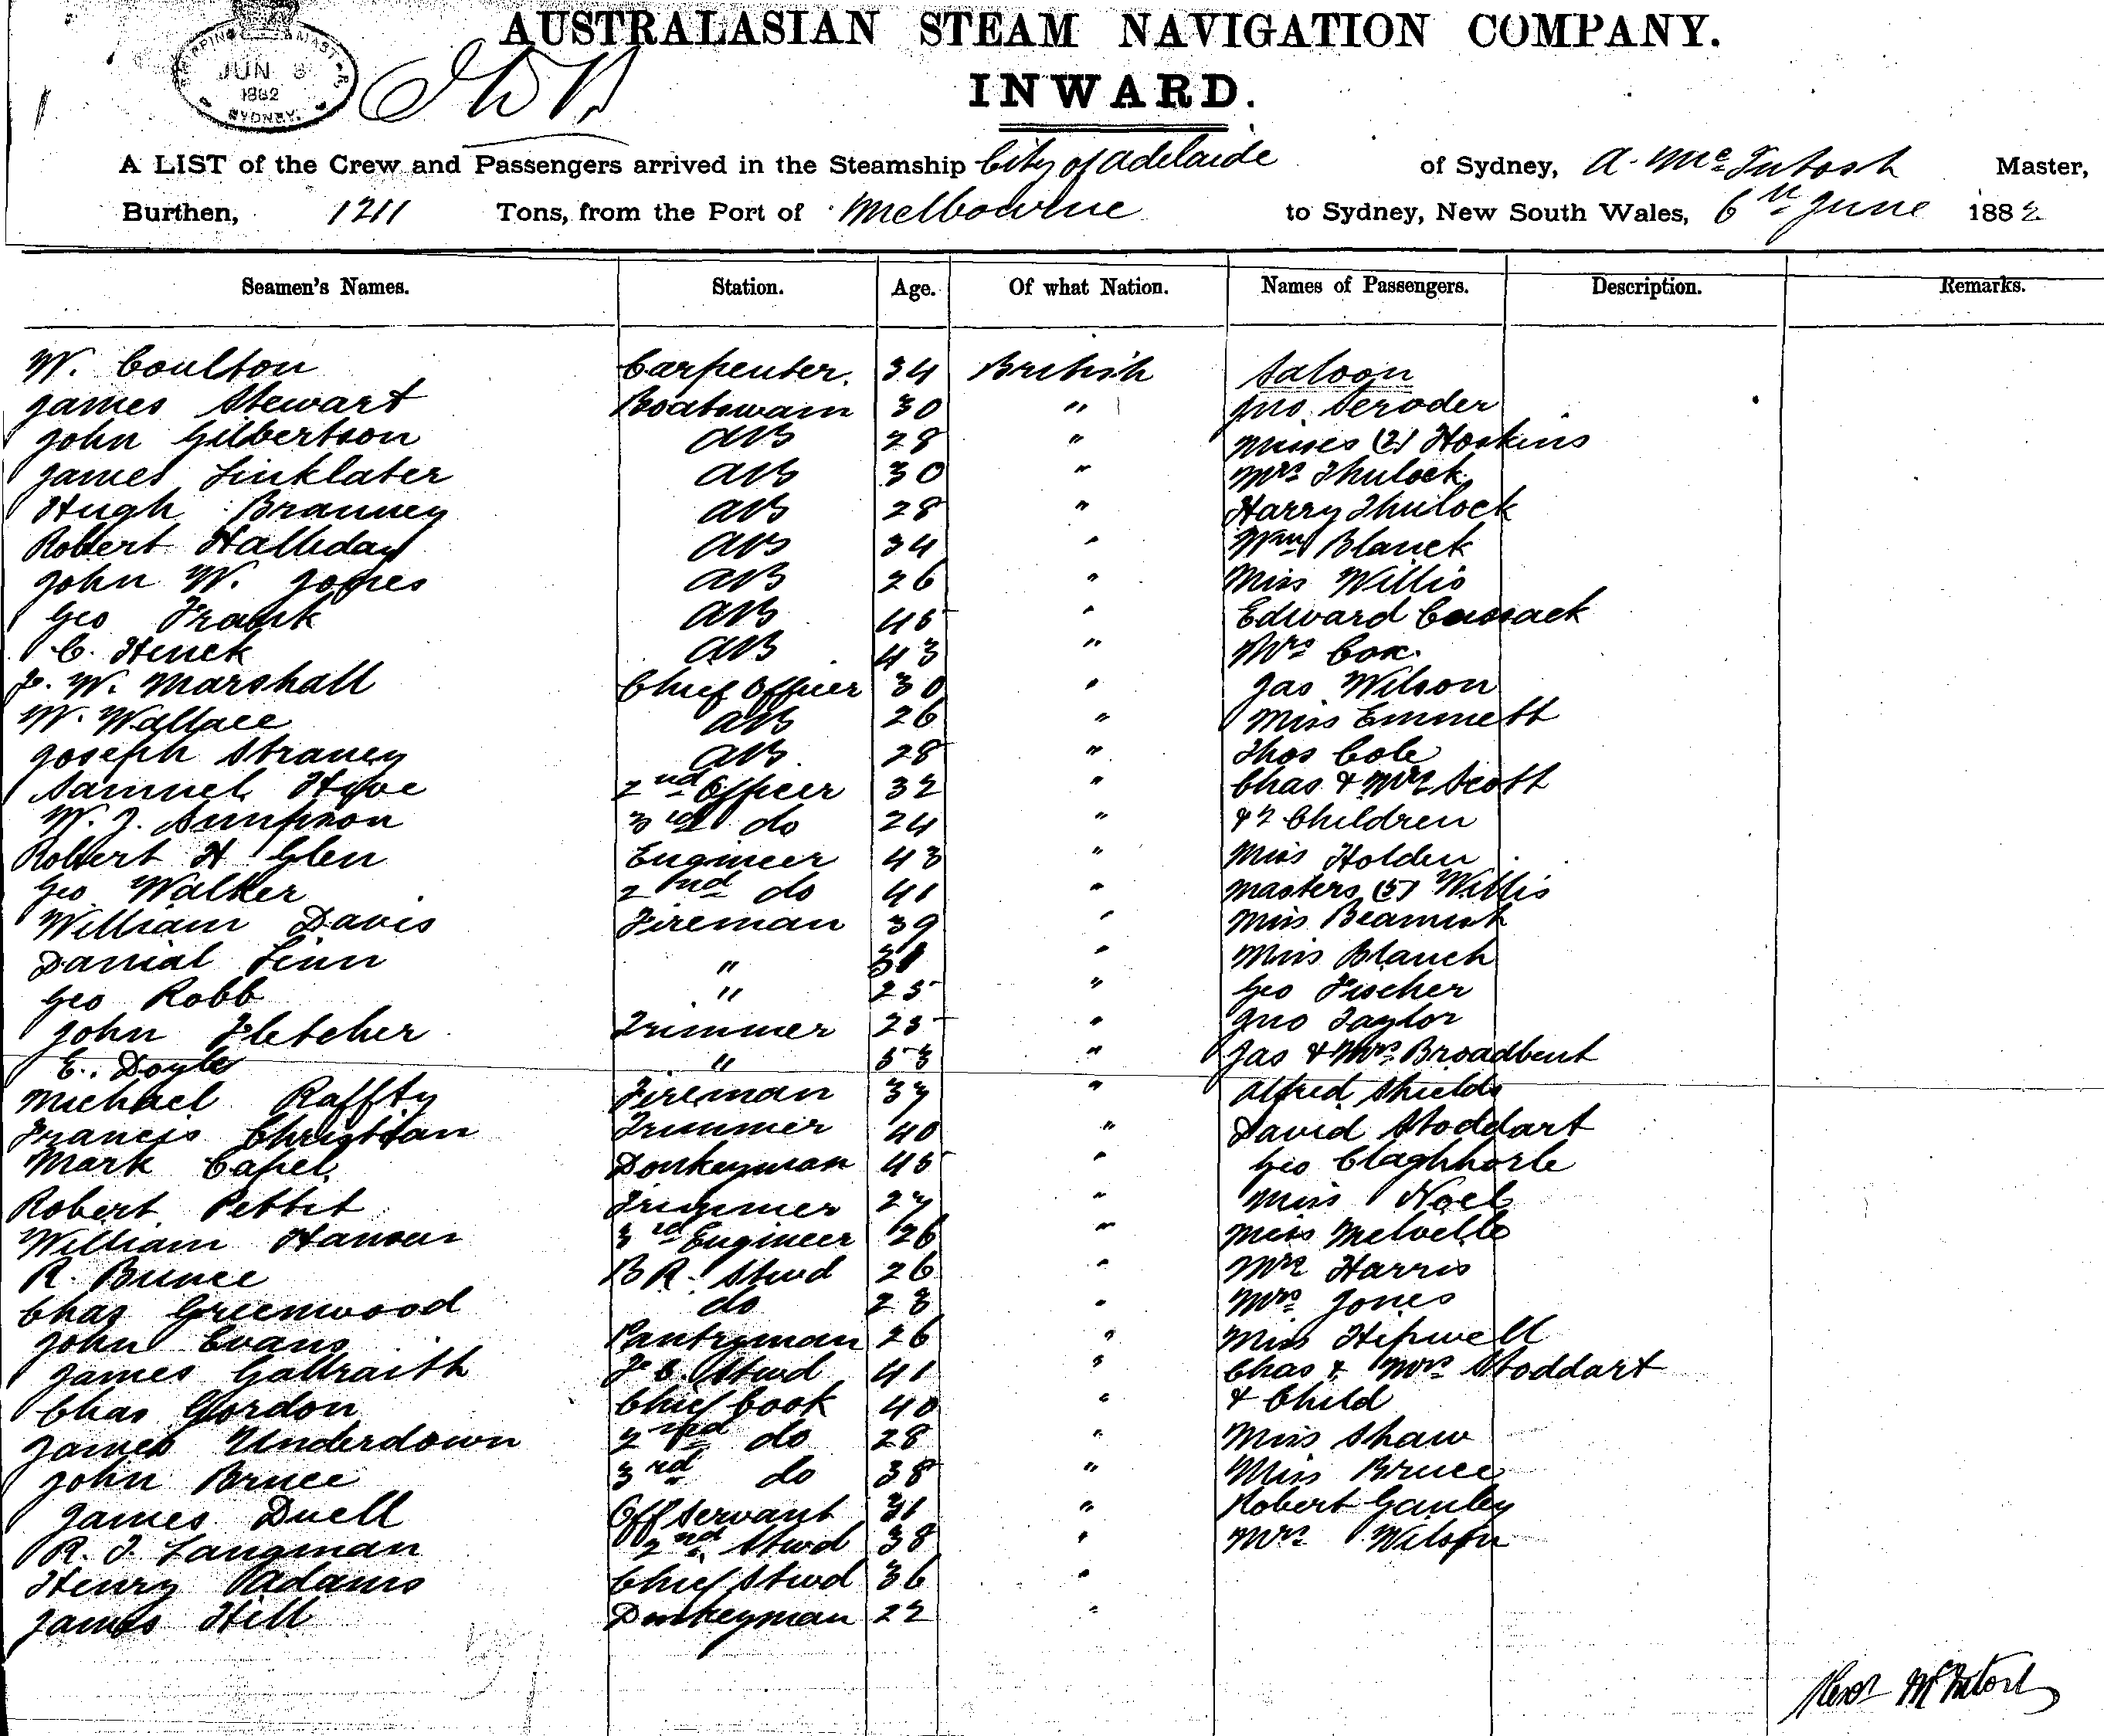 AUSTRALASIAN STEAM NAVIGATION COMPANY.
INWARD.
SHIPPING MASTER
JUN 8
1882
SYDNEY.
A LIST of the Crew and Passengers arrived in the Steamship City of Adelaide of Sydney, A. McIntosh Master,
Burthen, 1211 Tons, from the Port of Melbourne to Sydney, New South Wales, 6th June 1882
Seamen's Names. Station. Age. Of what Nation. Names of Passengers. Description. Remarks.
W. Coulton Carpenter. 34 British Saloon
James Stewart Boatswain 30 " Jno.
John Gilbertson AB 28 " Misses (2) Hoskins
James Linklater AB 30 " Mrs Thulock
Hugh Branney AB 28 " Harry Thulock
Robert Halliday AB 34 " Wm Blanck
John W. Jones AB 26 " Miss Willis
Geo Frank AB 45 " Edward Cussack
C. Henck AB 43 " Mrs Cox.
W. Marshall Chief Officer 30 " Jas Wilson
W. Wallace AB 26 " Miss Emmett
Joseph Straney AB 28 " Thos Cole
Samuel 2nd Officer 32 " Chas & Mrs Scott
W. J. Simpson 3rd do 24 " & 2 Children
Robert H Glen Engineer 43 " Miss Holden
Geo Walker 2nd do 41 " Masters (5) Willis
William Davis Fireman 39 " Miss Beamish
Danial Linn " " Miss Blanch
Geo Robb " 25 " Geo Fischer
John Fletcher Trimmer 25 " Jno Taylor
E. Doyle " 53 " Jas & Mrs Broadbent
Michael Raffty Fireman 37 " Alfred Shields
Francis Christian Trimmer 40 " David Stoddart
Mark Capel Donkeyman 45 " Geo
Robert Pettit Trimmer 27 " Miss Noel
William 3rd Engineer 26 " Miss Melville
R. Bunce B R. Stwd 26 " Mrs Harris
Chas Greenwood do 23 " Mrs Jones
John Evans Pantryman 26 " Miss Hipwell
James Galbraith F. C. Stwd 41 " Chas & Mrs Stoddart
Chas Gordon Chief Cook 40 " & Child
James Underdown 2nd do 28 " Miss Shaw
John Bruce 3rd do 38 " Miss Bruce
James Duell Off Servant 31 " Robert Ganley
R. J. Langman 2nd Stwd 38 " Mrs Wilson
Henry Adams Chief Stwd 36 "
James Hill Donkeyman 22 "
Alexr McIntosh